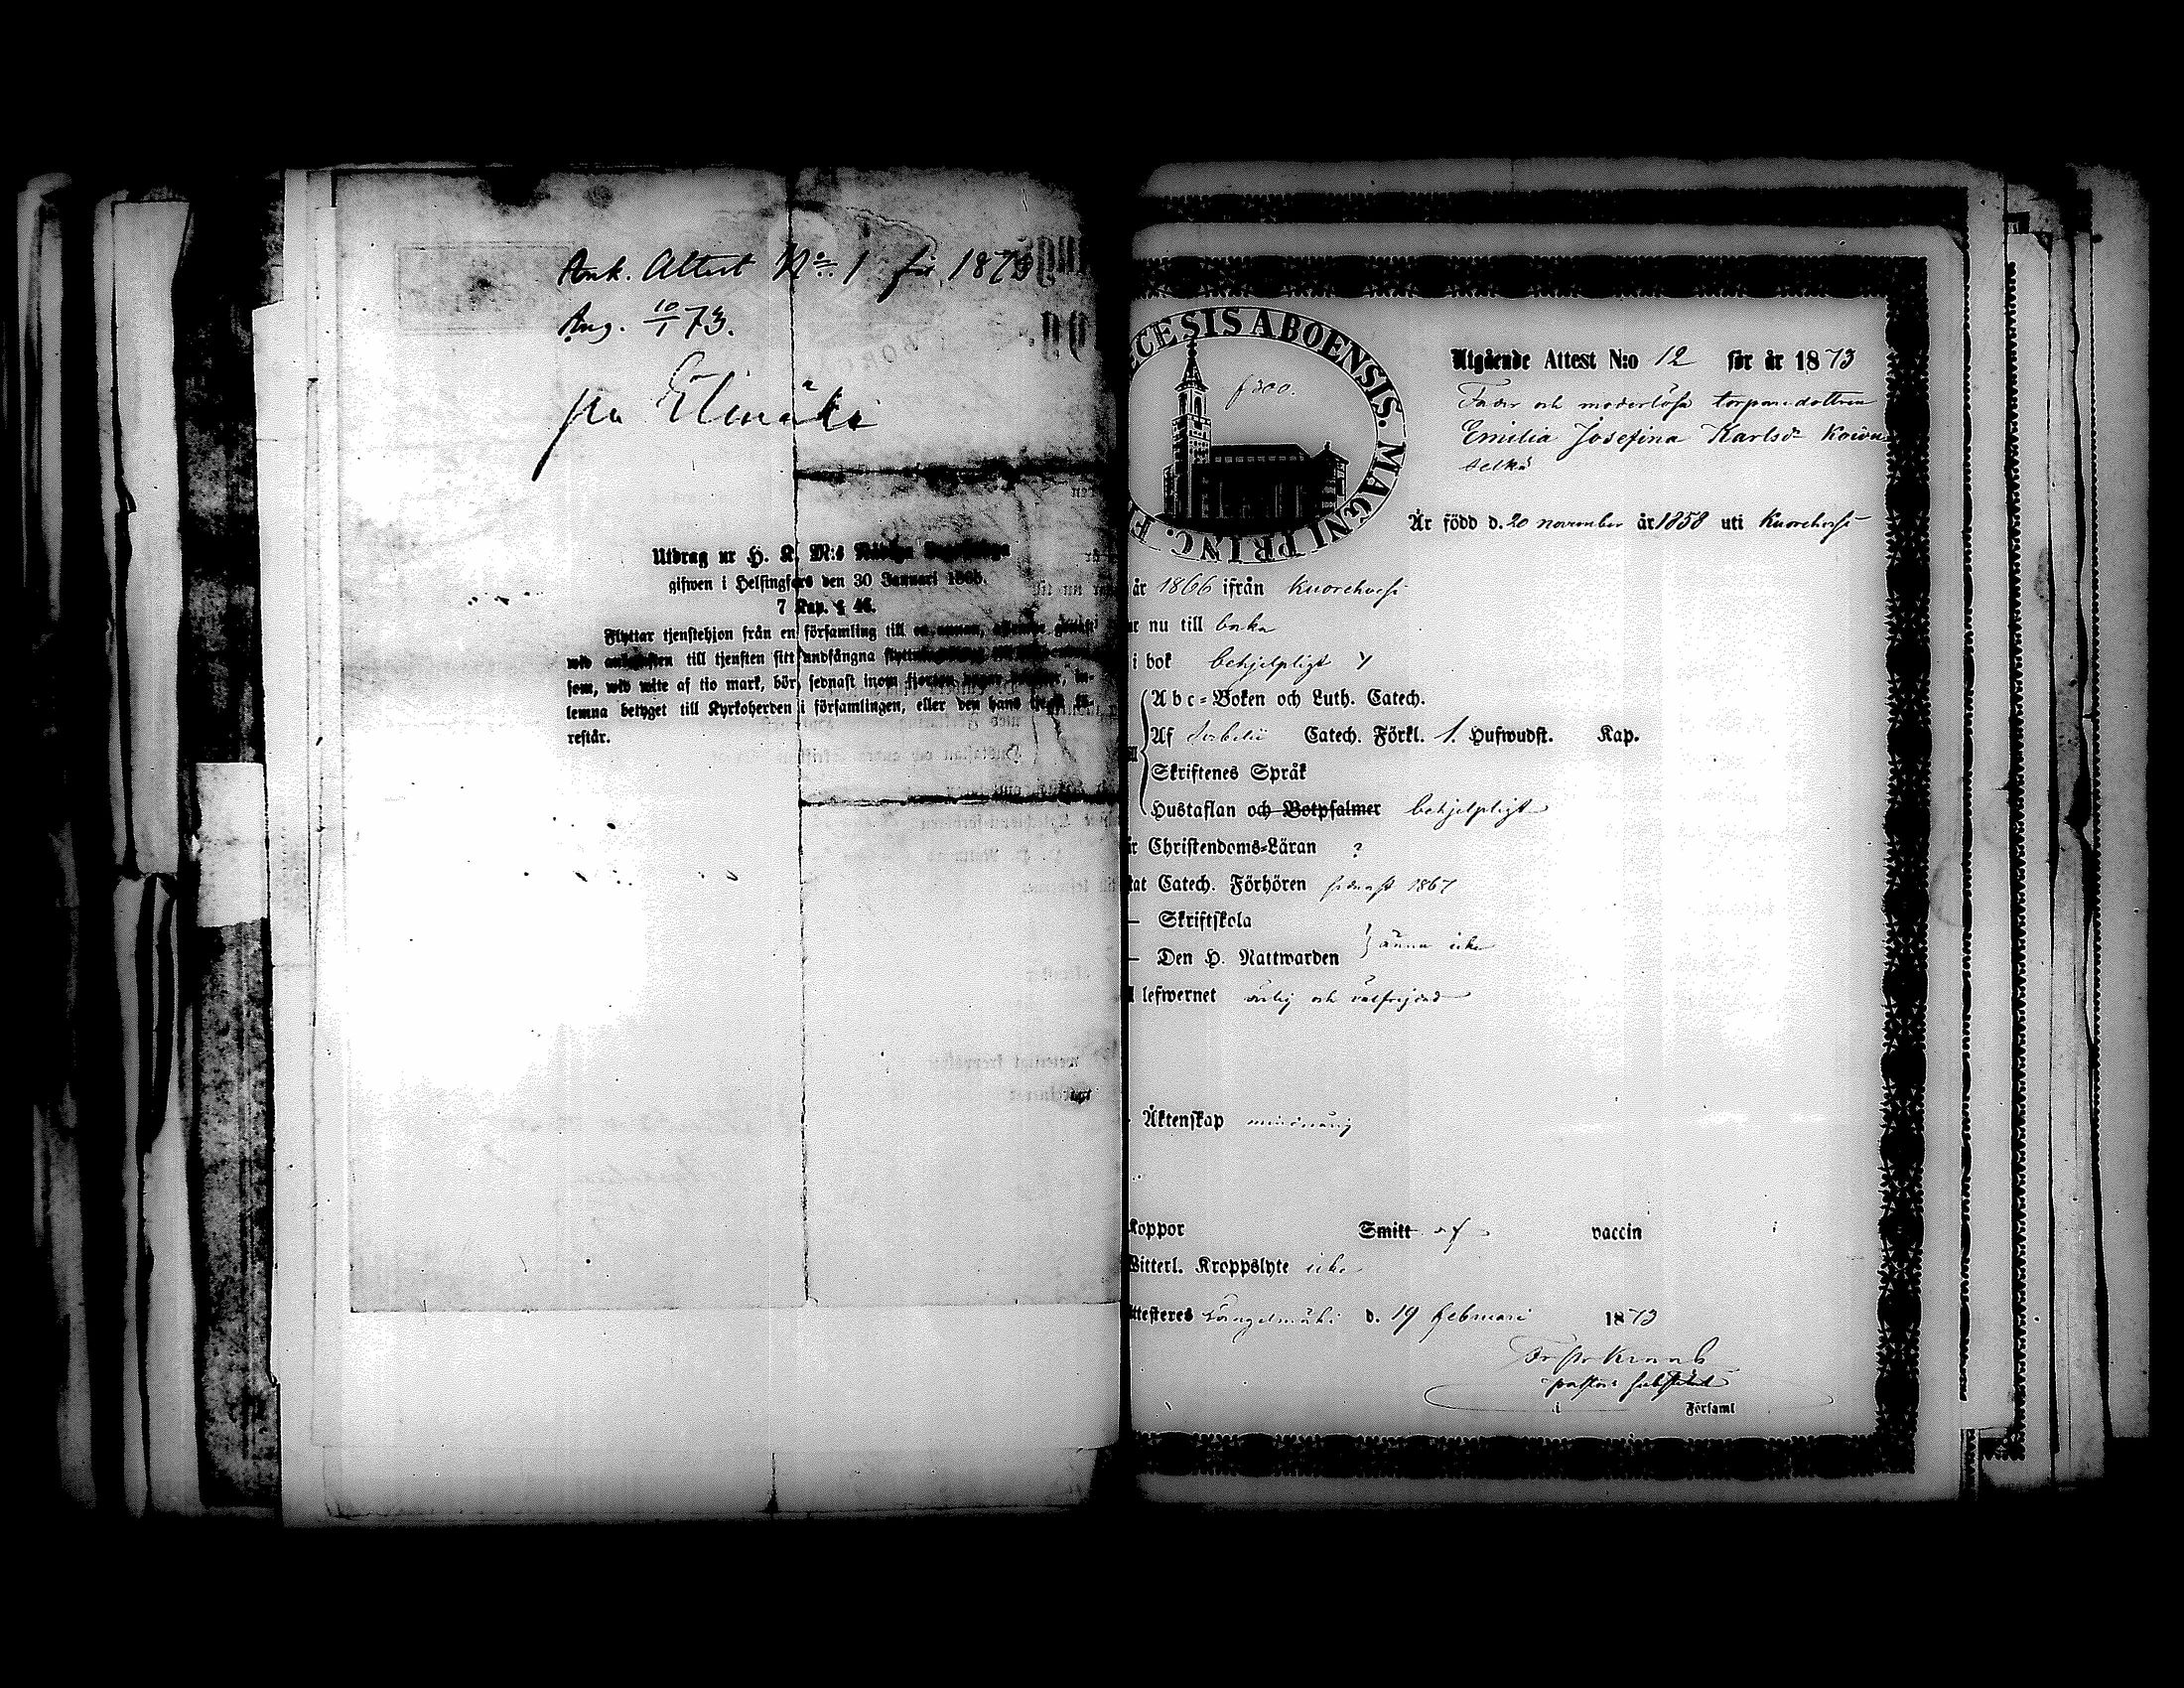 Ank. Attest No. 1 för 1873
Ang. 10/1 73.
fr. Elimäki
Utdrag ur H. K. M:s
gifwen i Helsingfors den 30 Januari
7 Kap. § 46.
Flyttar tjenstehjon från en församling till en annan,
wid till tjensten sitt undfångna
som, wid wite af tio mark, bör, sednast inom in-
lemna betyget till Kyrkoherden i församlingen, eller den hans fö-
restår.
ECESIS ABOENSIS. MAGNI PRINC. F
f 300.
Utgående Attest N:o 12 för år 1873
Fader och moderlösa torparedottren
Emilia Josefina Karlsdr Koivu
selkä
Är född d. 20 november år 1858 uti Kuorehvesi
år 1866 ifrån Kuorehvesi
ar nu till
i bok behjelpligt
Abc-Boken och Luth. Catech.
Af Catech. Förkl. 1. Hufwudst. Kap.
Skriftenes Språk
Hustaflan och Botpsalmer behjelpligt
Christendoms-Läran ?
Catech. Förhören sednast 1867
— Skriftskola
ännu icke
— Den H. Nattwarden
lefwernet ärlig och välfrejdad
Äktenskap minderårig
Koppor Smitt af vaccin
Witterl. Kroppslyte icke
Attesteres Längelmäki d. 19 februari 1873
i Församl